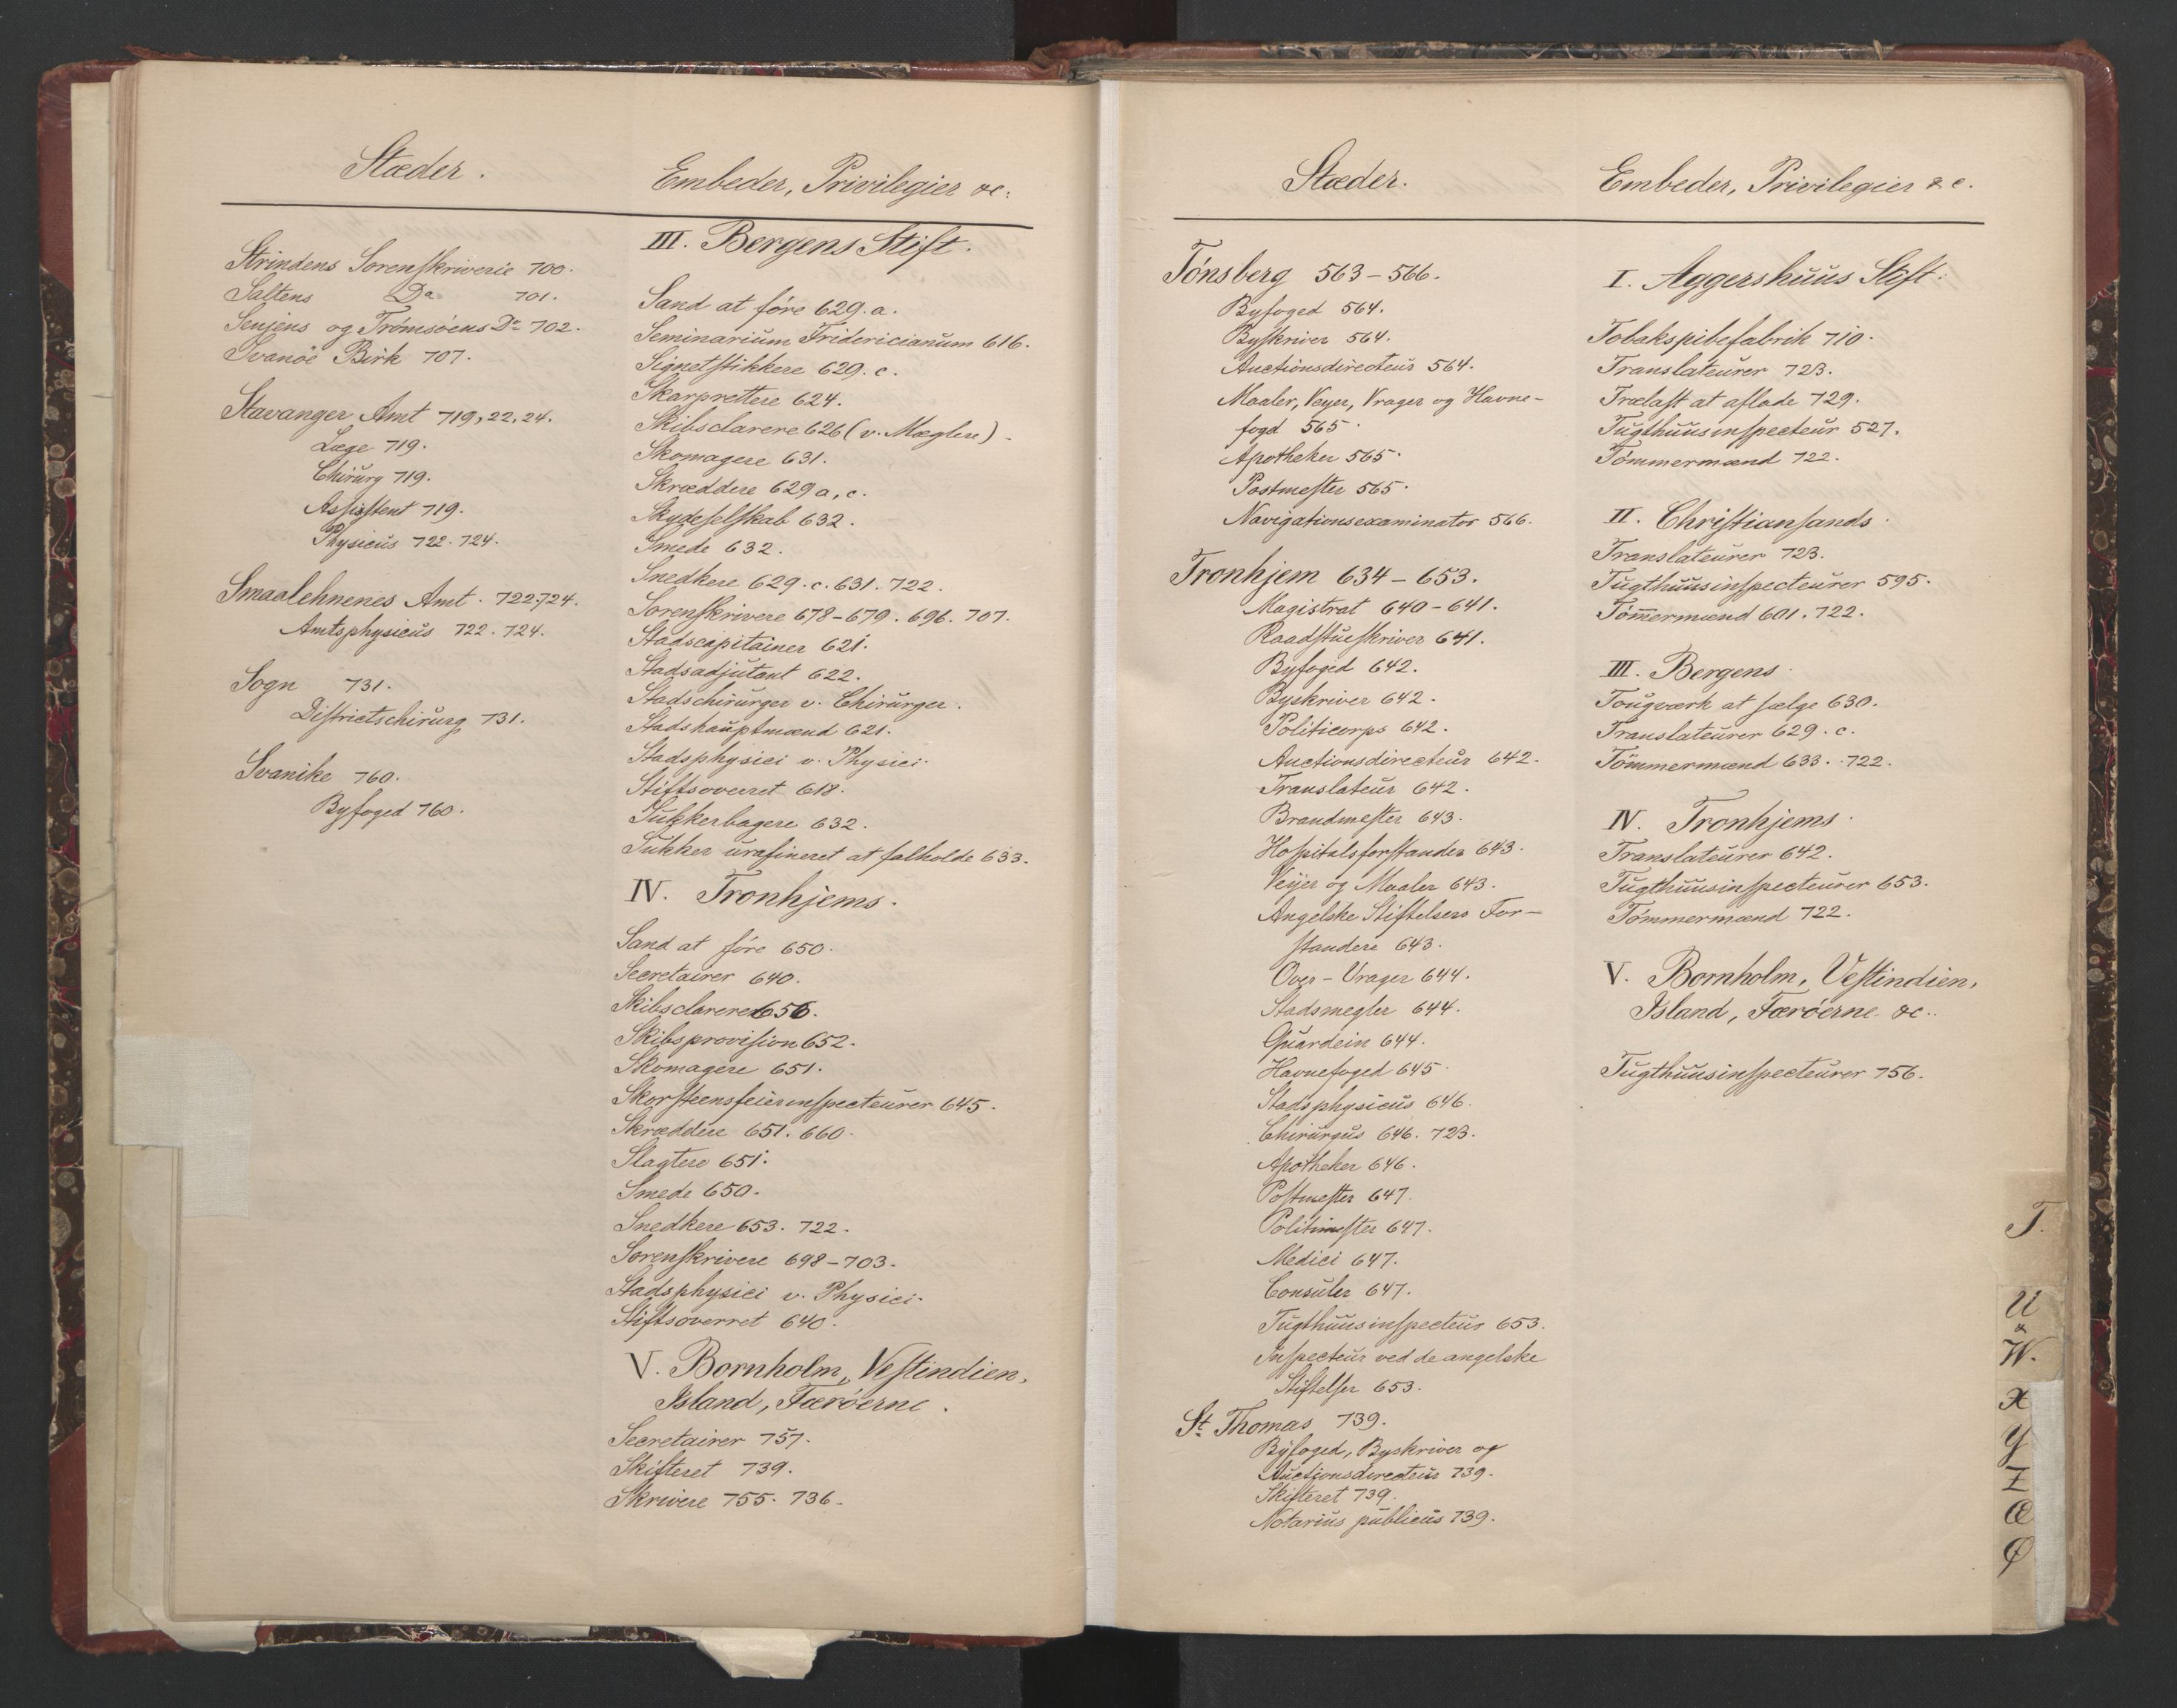 Stæder.
Strindens Sorenskriverie 700.
Saltens Do 701.
Senjens og Tromsøens Do 702.
Svanöe Birk 707.
Stavanger Amt 719, 22, 24.
Læge 719.
Chirurg 719.
Assistent 719.
Physicus 722. 724.
Smaalehnenes Amt. 722.724.
Amtsphysicus 722. 724.
Sogn 731.
Districtschirurg 731.
Svanike 760.
Byfoged 760.
Embeder, Privilegier &c:
III. Bergens Stift.
Sand at före 629. a.
Seminarium Fridericianum 616.
Signetstikkere 629. c.
Skarprettere 624.
Skibsclarere 626 (v. Mæglere).
Skomagere 631.
Skræddere 629 a, c.
Skydeselskab 632.
Smede 632.
Snedkere 629. c. 631. 722.
Sorenskrivere 678-679. 696. 707.
Stadscapitainer 621.
Stadsadjutant 622.
Stadschirurger v. Chirurger.
Stadshauptmænd 621.
Stadsphysici v. Physici.
Stiftsoverret 618.
Sukkerbagere 632.
Sukker urafineret at falholde 633.
IV. Tronhjems.
Sand at före 650.
Secretairer 640.
Skibsclarerer 656.
Skibsprovision 652.
Skomagere 651.
Skorsteensfeierinspecteurer 645.
Skræddere 651. 660.
Slagtere 651.
Smede 650.
Snedkere 653. 722.
Sorenskrivere 698-703.
Stadsphysici v. Physici.
Stiftsoverret 640.
V. Bornholm, Vestindien,
Island, Færöerne.
Secretairer 757.
Skifteret 739.
Skrivere 755. 736.
Stæder.
Tönsberg 563-566.
Byfoged 564.
Byskriver 564.
Auctionsdirecteur 564.
Maaler, Veyer, Vrager og Havne-
fogd 565.
Apotheker 565.
Postmester 565.
Navigationsexaminator 566.
Tronhjem 634-653.
Magistrat 640-641.
Raadstueskriver 641.
Byfoged 642.
Byskriver 642.
Politicorps 642.
Auctionsdirecteur 642.
Translateur 642.
Brandmester 643.
Hospitalsforstander 643.
Veijer og Maaler 643.
Angelske Stiftelsers For-
standere 643.
Over-Vrager 644.
Stadsmegler 644.
Guardein 644.
Havnefoged 645.
Stadsphysicus 646.
Chirurgus 646. 723.
Apotheker 646.
Postmester 647.
Politimester 647.
Medici 647.
Consuler 647.
Tugthuusinspecteur 653.
Inspecteur ved de angelske
Stiftelser 653.
St. Thomas 739.
Byfoged, Byskriver og
Auctionsdirecteur 739.
Skifteret 739.
Notarius publicus 739.
Embeder, Privilegier &c.
I. Aggershuus Stift:
Tobakspibefabrik 710.
Translateurer 723.
Trælast at aflade 729.
Tugthuusinspecteur 527.
Tömmermænd 722.
II. Christiansands.
Translateurer 723.
Tugthuusinspecteurer 595.
Tömermænd 601. 722.
III. Bergens.
Tougværk at sælge 630.
Translateurer 629. c.
Tömmermænd 633. 722.
IV. Tronhjems.
Translateurer 642.
Tugthuusinspecteurer 653.
Tömmermænd 722.
V. Bornholm, Vestindien,
Island, Færöerne &c.
Tugthuusinspecteurer 756.
T.
U
&
W.
X
Y
Z
Æ
Ø